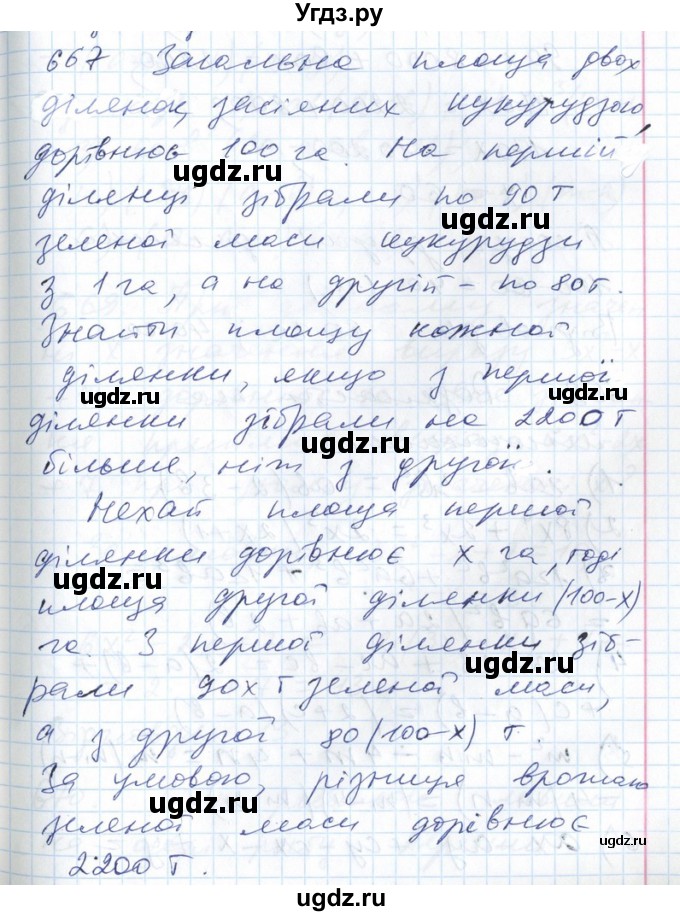 Угдз.ру
667 Загальна площа двох
ділянок, засіяних кукурудзою
дорівнює 100 га. На першій
ugdz.ru ugdz.ru
ділянці зібрали по 90 т
ugdz.ru
зеленої маси кукурудзи
з 1 га, а на другій - по 80 т.
ugdz.ru
Знайти площу кожної
ділянки, якщо з першої
ugdz.ru ugdz.ru
ділянки зібрали на 2200 т
більше, ніж з другої.
ugdz.ru
Нехай площа першої
ділянки дорівнює x га, тоді
ugdz.ru
площа другої ділянки (100-x)
ugdz.ru
га. З першої ділянки зіб-
ugdz.ru
рали 90x т зеленої маси,
а з другої 80(100-x) т.
ugdz.ru
За умовою, різниця врожаю
ugdz.ru
зеленої маси дорівнює
ugdz.ru
2200 т.
ugdz.ru